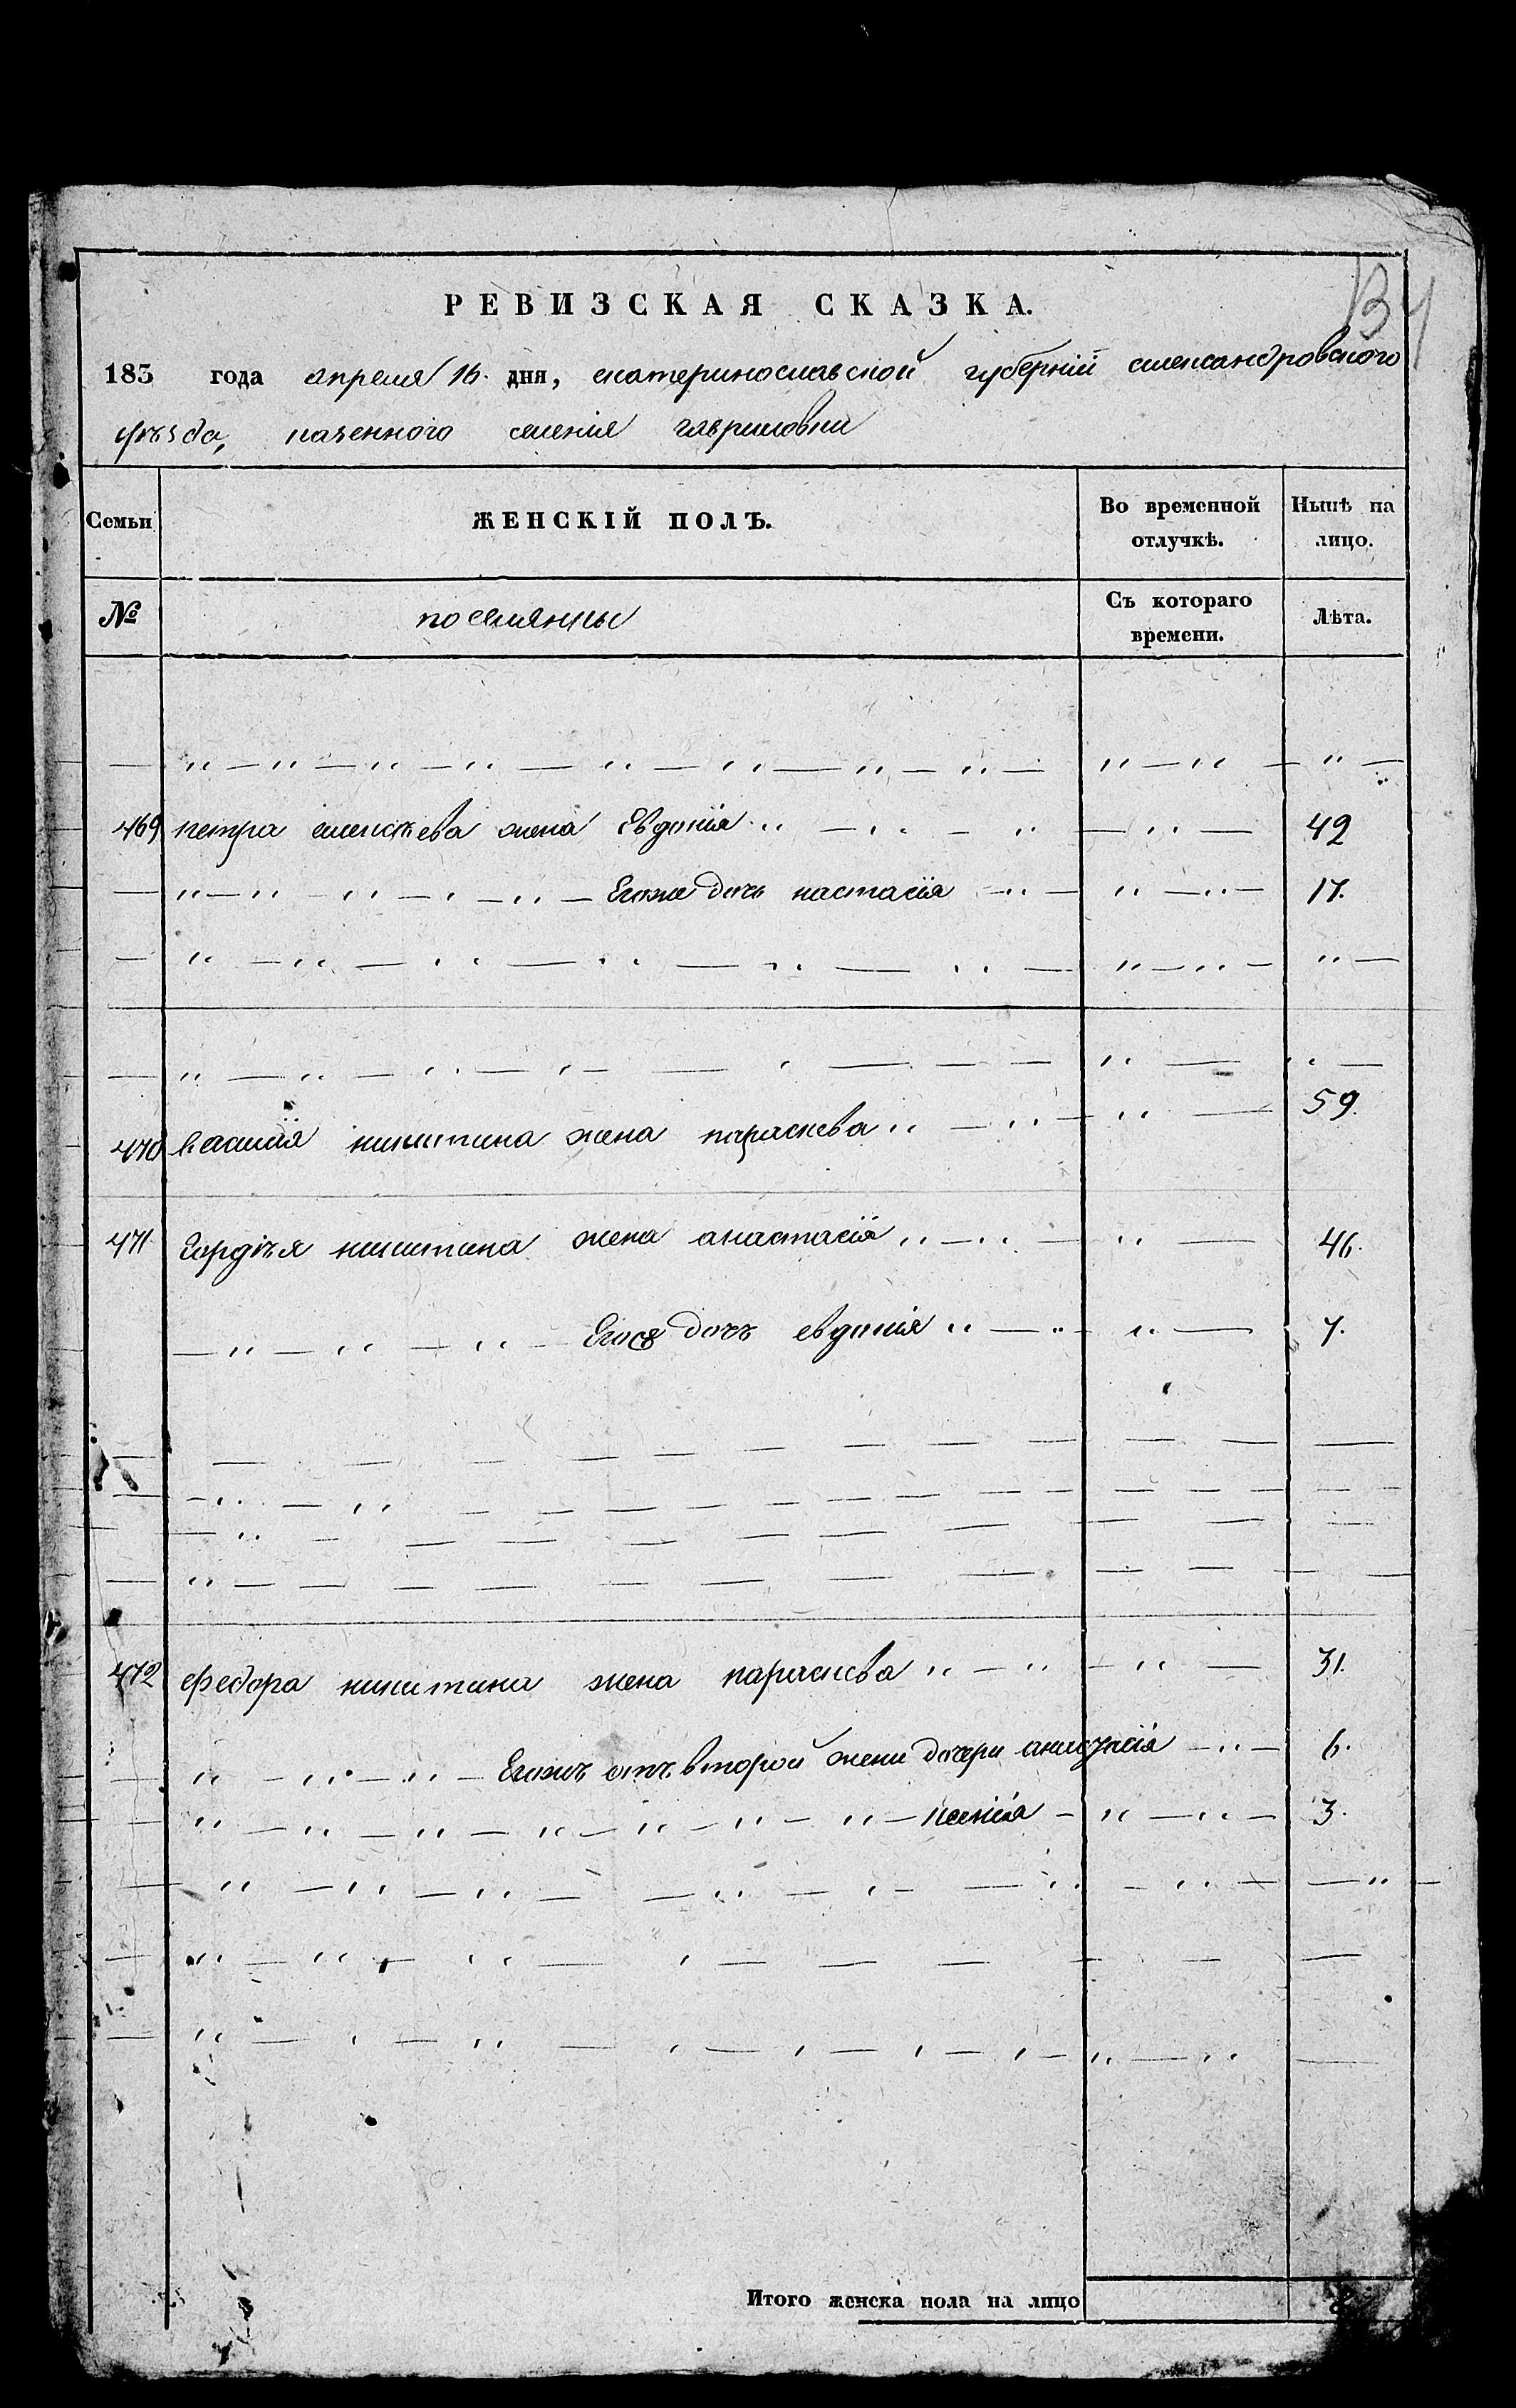 134
РЕВИЗСКАЯ СКАЗКА.
183 года апреля 16. дня, екатеринославской губернїи александровского
уѣзда, казенного селенія гавриловки
Семьи ЖЕНСКІЙ ПОЛЪ. Во временной отлучкѣ. Нынѣ на лицо.
№ поселянцы Съ котораго времени. Лѣта.
469 петра алексѣева жена Евдокїя 42
Егоже дочь настасїя 17.
470 василїя никитина жена параскева 59.
471 Гордѣя никитина жена анастасїя 46.
Егоже дочъ евдокїя 7.
472 федора никитина жена параскева 31.
Егожъ отъ второй жени дочери 6.
ксенїя 3.
Итого женска пола на лицо 8